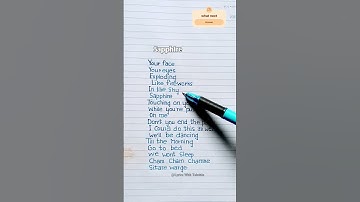 what next
Sapphire
Your face
Your eyes
Exploding
Like fireworks
In the sky
Sapphire
Touching on yo
While you're pu
On me
Don't you end the p
I could do this all w
We'd be dancing
Till the morning
Go to bed
We won't sleep
Cham cham charme
Sitare warge